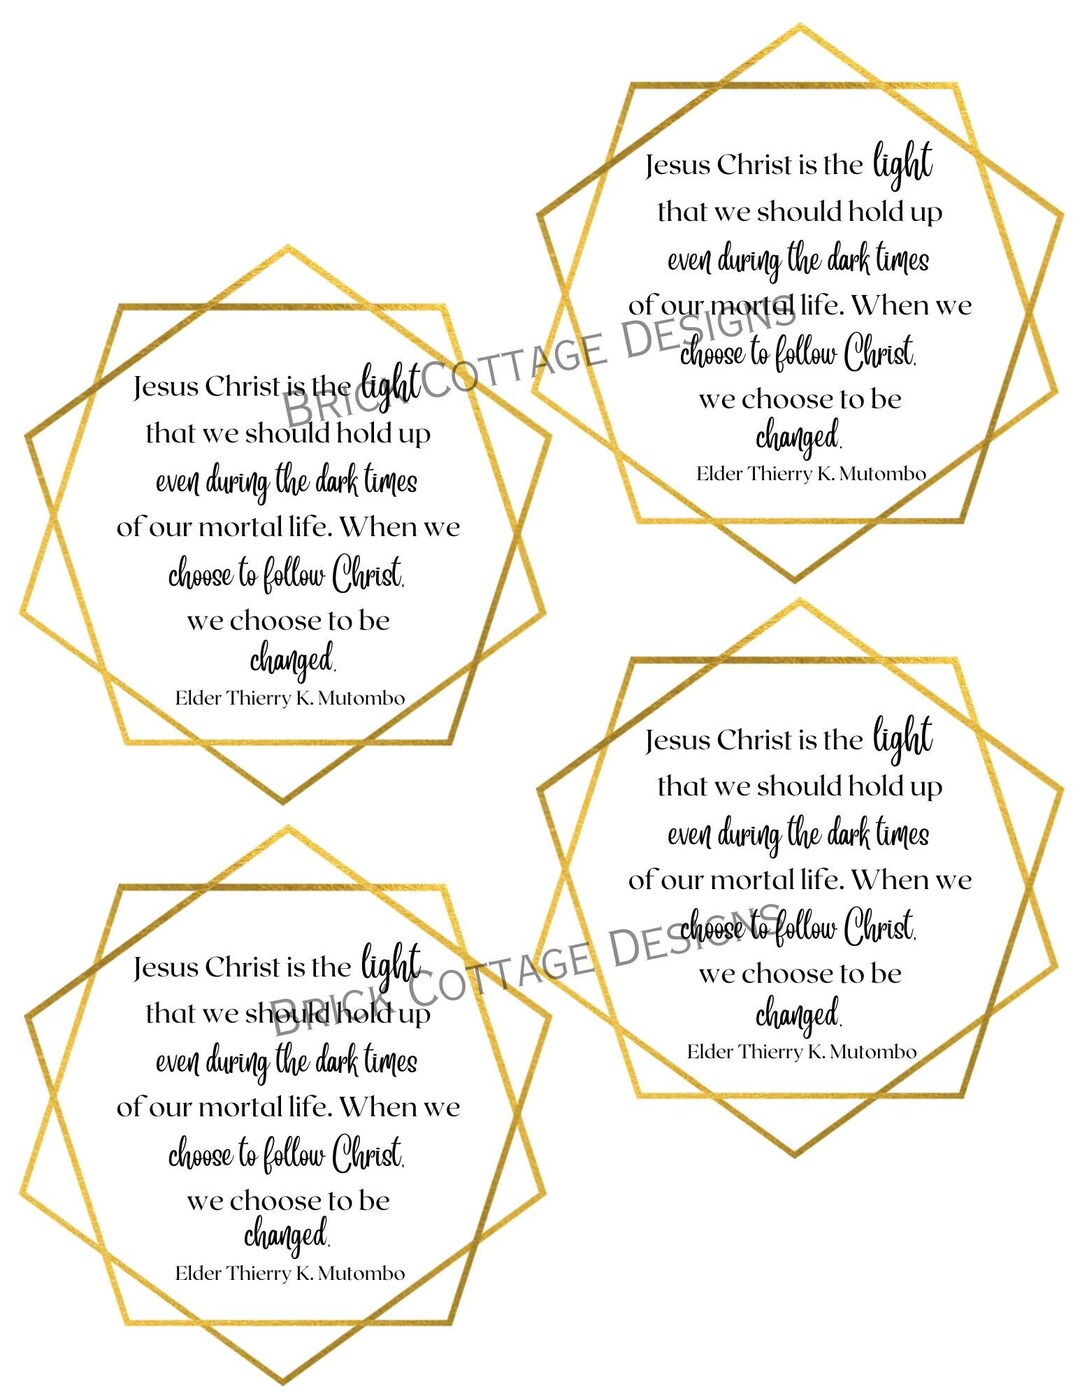 Jesus Christ is the light
that we should hold up
even during the dark times
of our mortal life. When we
choose to follow Christ,
we choose to be
changed.
Elder Thierry K. Mutombo
Jesus Christ is the light
that we should hold up
even during the dark times
of our mortal life. When we
choose to follow Christ,
we choose to be
changed.
Elder Thierry K. Mutombo
Brick Cottage Designs
Jesus Christ is the light
that we should hold up
even during the dark times
of our mortal life. When we
choose to follow Christ,
we choose to be
changed.
Elder Thierry K. Mutombo
Jesus Christ is the light
that we should hold up
even during the dark times
of our mortal life. When we
choose to follow Christ,
we choose to be
changed.
Elder Thierry K. Mutombo
Brick Cottage Designs